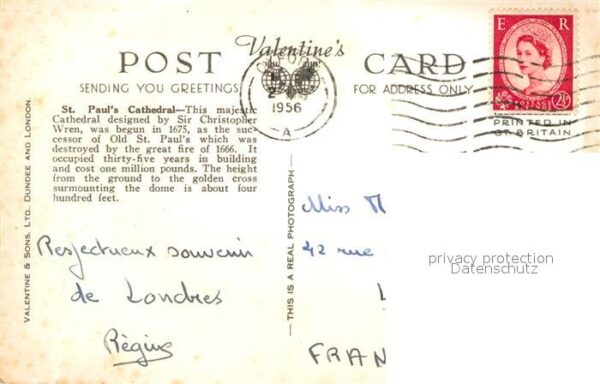 Valentine's
POST CARD
SENDING YOU GREETINGS FOR ADDRESS ONLY
E R
2½
1956
A
PRINTED IN
GT. BRITAIN
St. Paul's Cathedral—This majestic
Cathedral designed by Sir Christopher
Wren, was begun in 1675, as the suc-
cessor of Old St. Paul's which was
destroyed by the great fire of 1666. It
occupied thirty-five years in building
and cost one million pounds. The height
from the ground to the golden cross
surmounting the dome is about four
hundred feet.
VALENTINE & SONS, LTD., DUNDEE AND LONDON.
THIS IS A REAL PHOTOGRAPH
Respectueux souvenir
de Londres
Régine
Miss M
42 rue
L
FRAN
privacy protection
Datenschutz